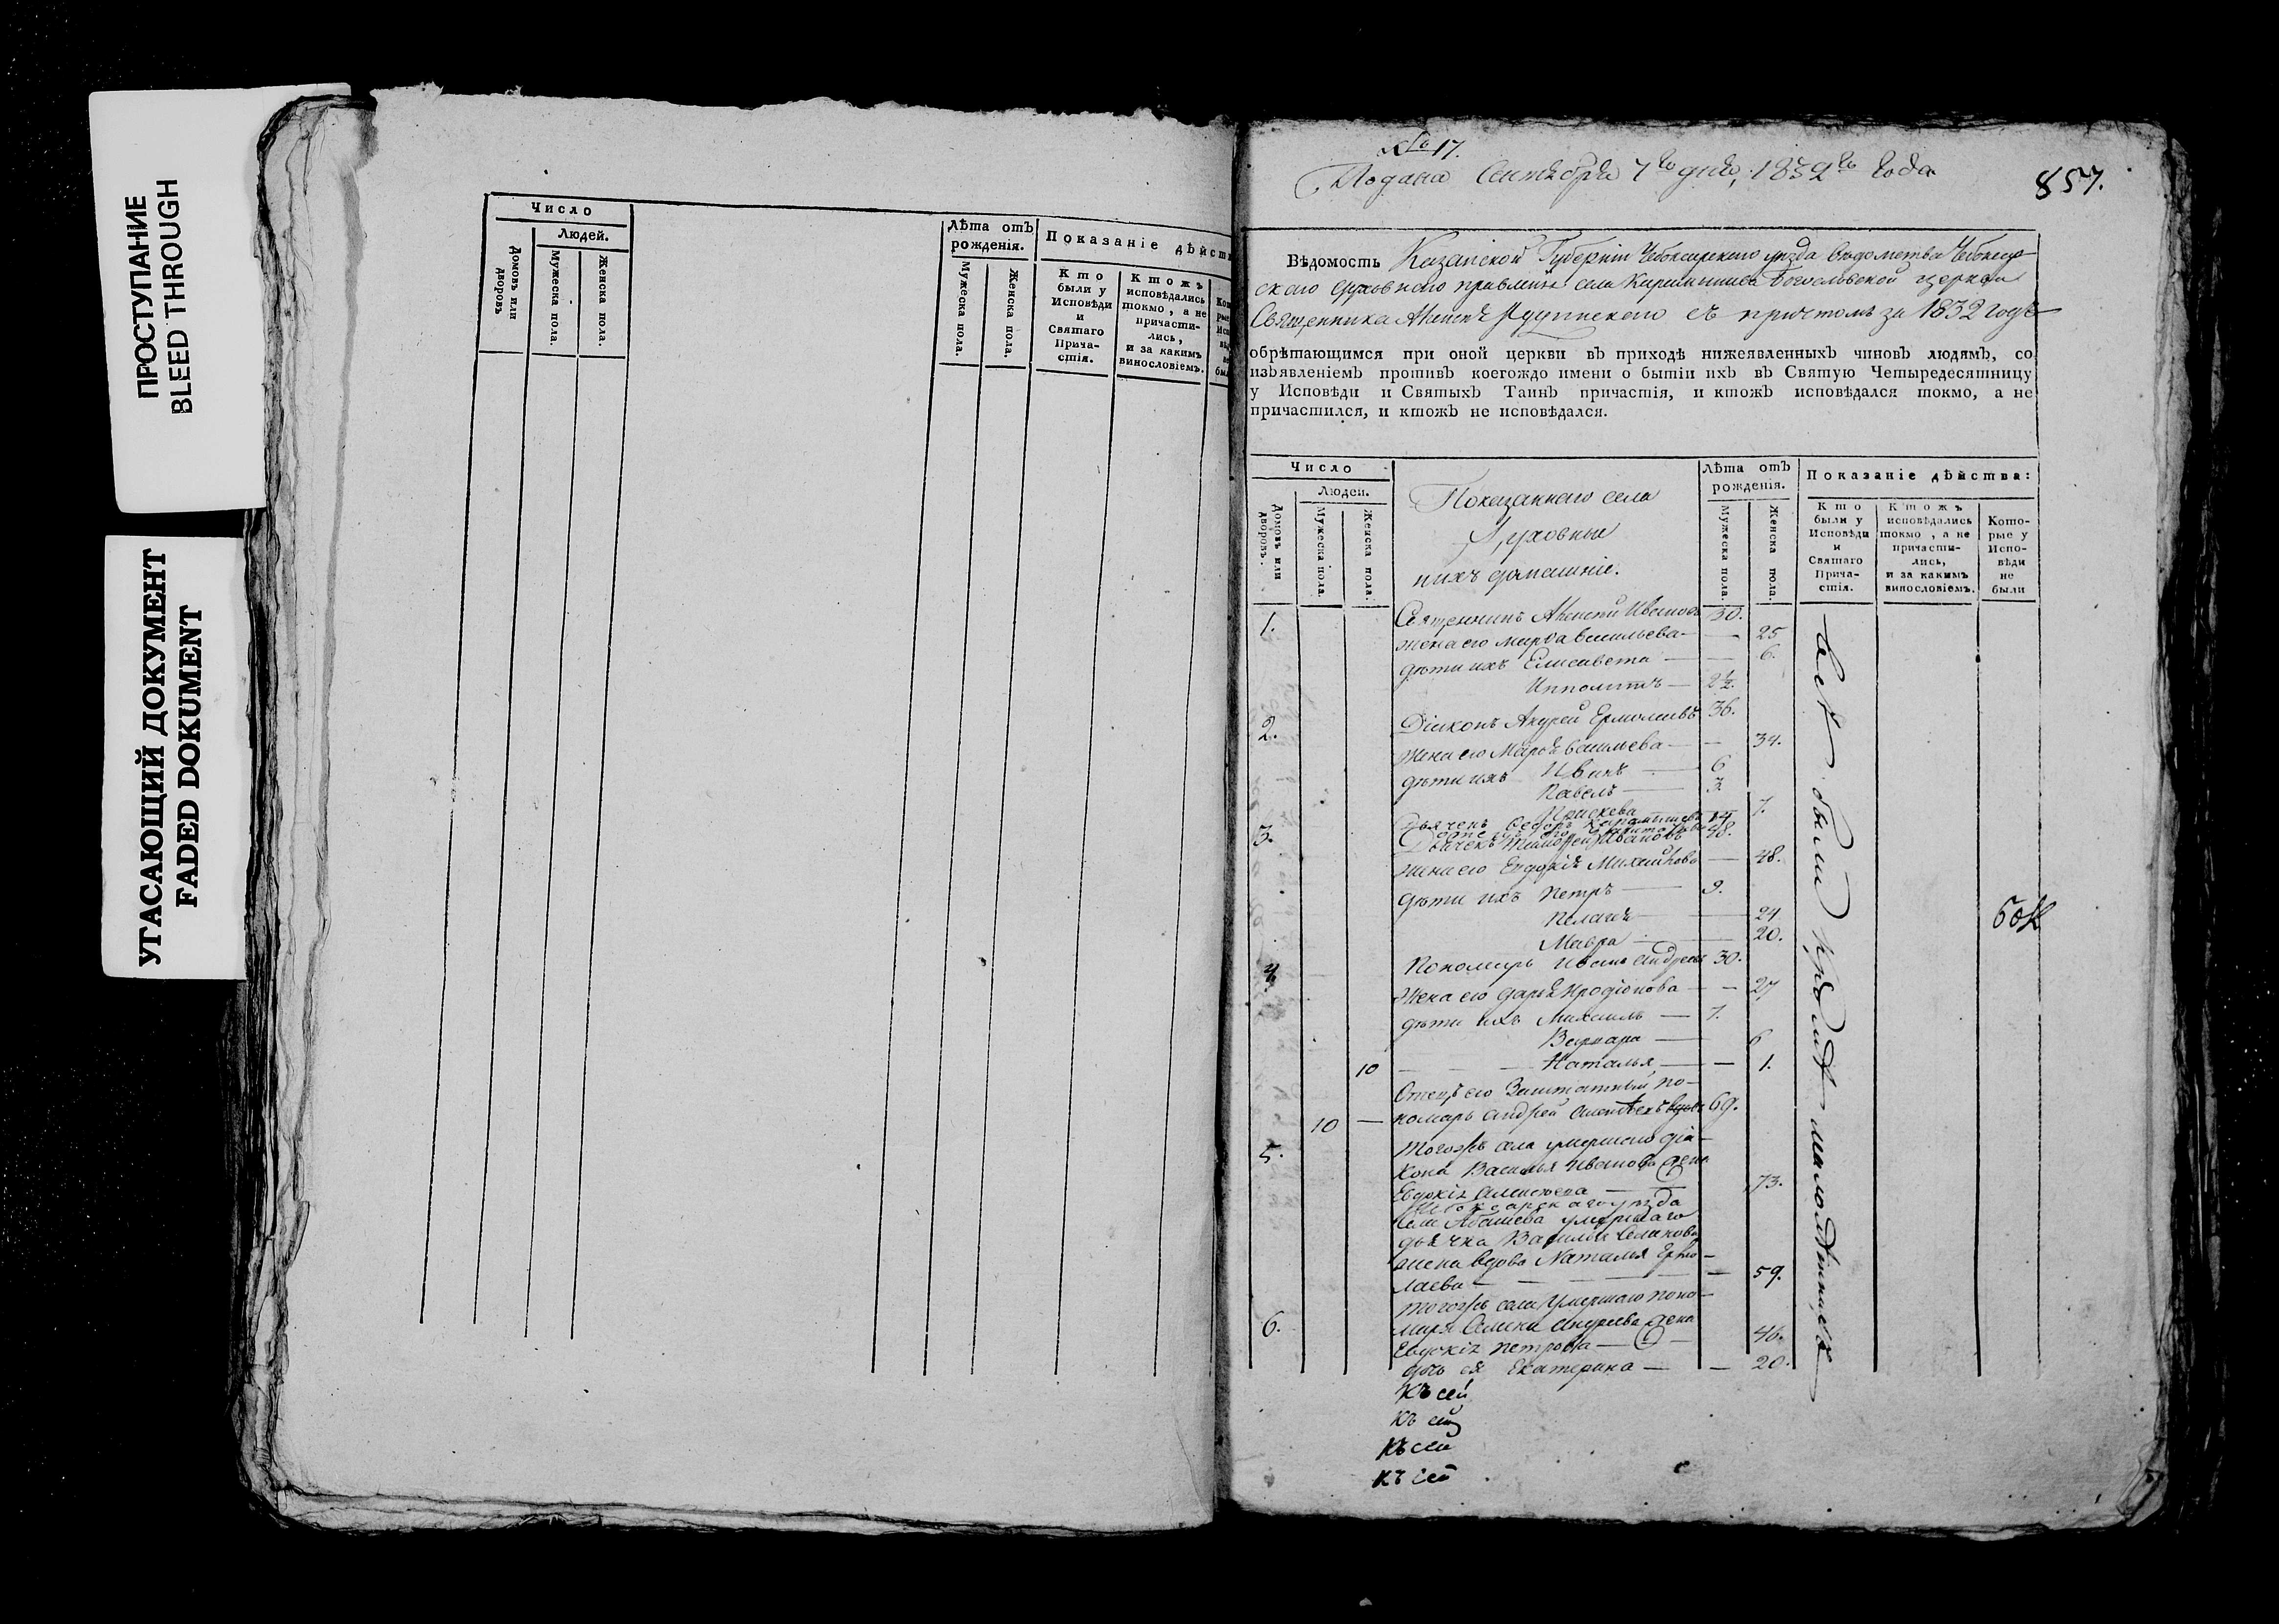 ПРОСТУПАНИЕ
BLEED THROUGH
УГАСАЮЩИЙ ДОКУМЕНТ
FADED DOKUMENT
Число
Людей.
Домовъ или дворовъ
Мужеска пола.
Женска пола.
Лѣта отъ рожденія.
Мужеска пола.
Женска пола.
Показаніе дѣйств
Кто были у Исповѣди и Святаго Прича-стія.
Ктожъ исповѣдались токмо, а не причасти-лись, и за какимъ винословіемъ.
№ 17.
Подана Сентября 7го дня, 1832го года
857.
Вѣдомость Казанской Губерніи Чебоксарскаго уѣзда вѣдомства Чебоксар-
скаго духовнаго правленія села Богословской церкви
Священника съ причтомъ за 1832 годъ
обрѣтающимся при оной церкви въ приходѣ нижеявленныхъ чиновъ людямъ, со
изъявленіемъ противъ коегождо имени о бытіи ихъ въ Святую Четыредесятницу
у Исповѣди и Святыхъ Таинъ причастія, и ктожъ исповѣдался токмо, а не
причастился, и ктожъ не исповѣдался.
Число
Людей.
Домовъ или дворовъ.
Мужеска пола.
Женска пола.
Показаннаго села
Духовныя
ихъ домашніе.
Лѣта отъ рожденія.
Мужеска пола.
Женска пола.
Показаніе дѣйства:
Кто были у Исповѣди и Святаго Прича-стія.
Ктожъ исповѣдались токмо, а не причасти-лись, и за какимъ винословіемъ.
Кото-рые у Испо-вѣди не были
1. Священникъ Алексѣй Ивановъ 30.
жена его Марѳа Васильева — 25
дѣти ихъ Елисавета — 6.
Ипполитъ — 2½.
2. Діаконъ Андрей Ермолаевъ 36.
Жена его Марья Васильева — 34.
дѣти ихъ Иванъ — 6
Павелъ — 3.
Праскева 7.
Дьячекъ Ѳедоръ 14
3. Дьячекъ Тимоѳей Ивановъ 48.
жена его Евдокія Михайлова — 48.
дѣти ихъ Петръ — 9.
Пелагія — 24
Мавра — 20.
4 Пономарь Иванъ Андреевъ 30.
Жена его Дарья Иродіонова — 27
дѣти ихъ Михаилъ — 7.
Варвара — 6
10 Наталья — 1.
Отецъ его Заштатный по-
10 — номарь Андрей Алексѣевъ вдовъ 69.
5. Тогожъ села умершаго діа-
кона Василья Иванова жена
Евдокія Алексѣева — 73.
Чебоксарскаго уѣзда
села Абашева умершаго
дьячка Василья
жена вдова Наталья Ермо-
лаева — 59.
6. Тогожъ села умершаго поно-
маря Андреева жена
Евдокія Петрова — 46.
дочь ея Екатерина — 20.
всѣ были кромѣ малолѣтныхъ
къ сей
къ сей
къ сей
къ сей